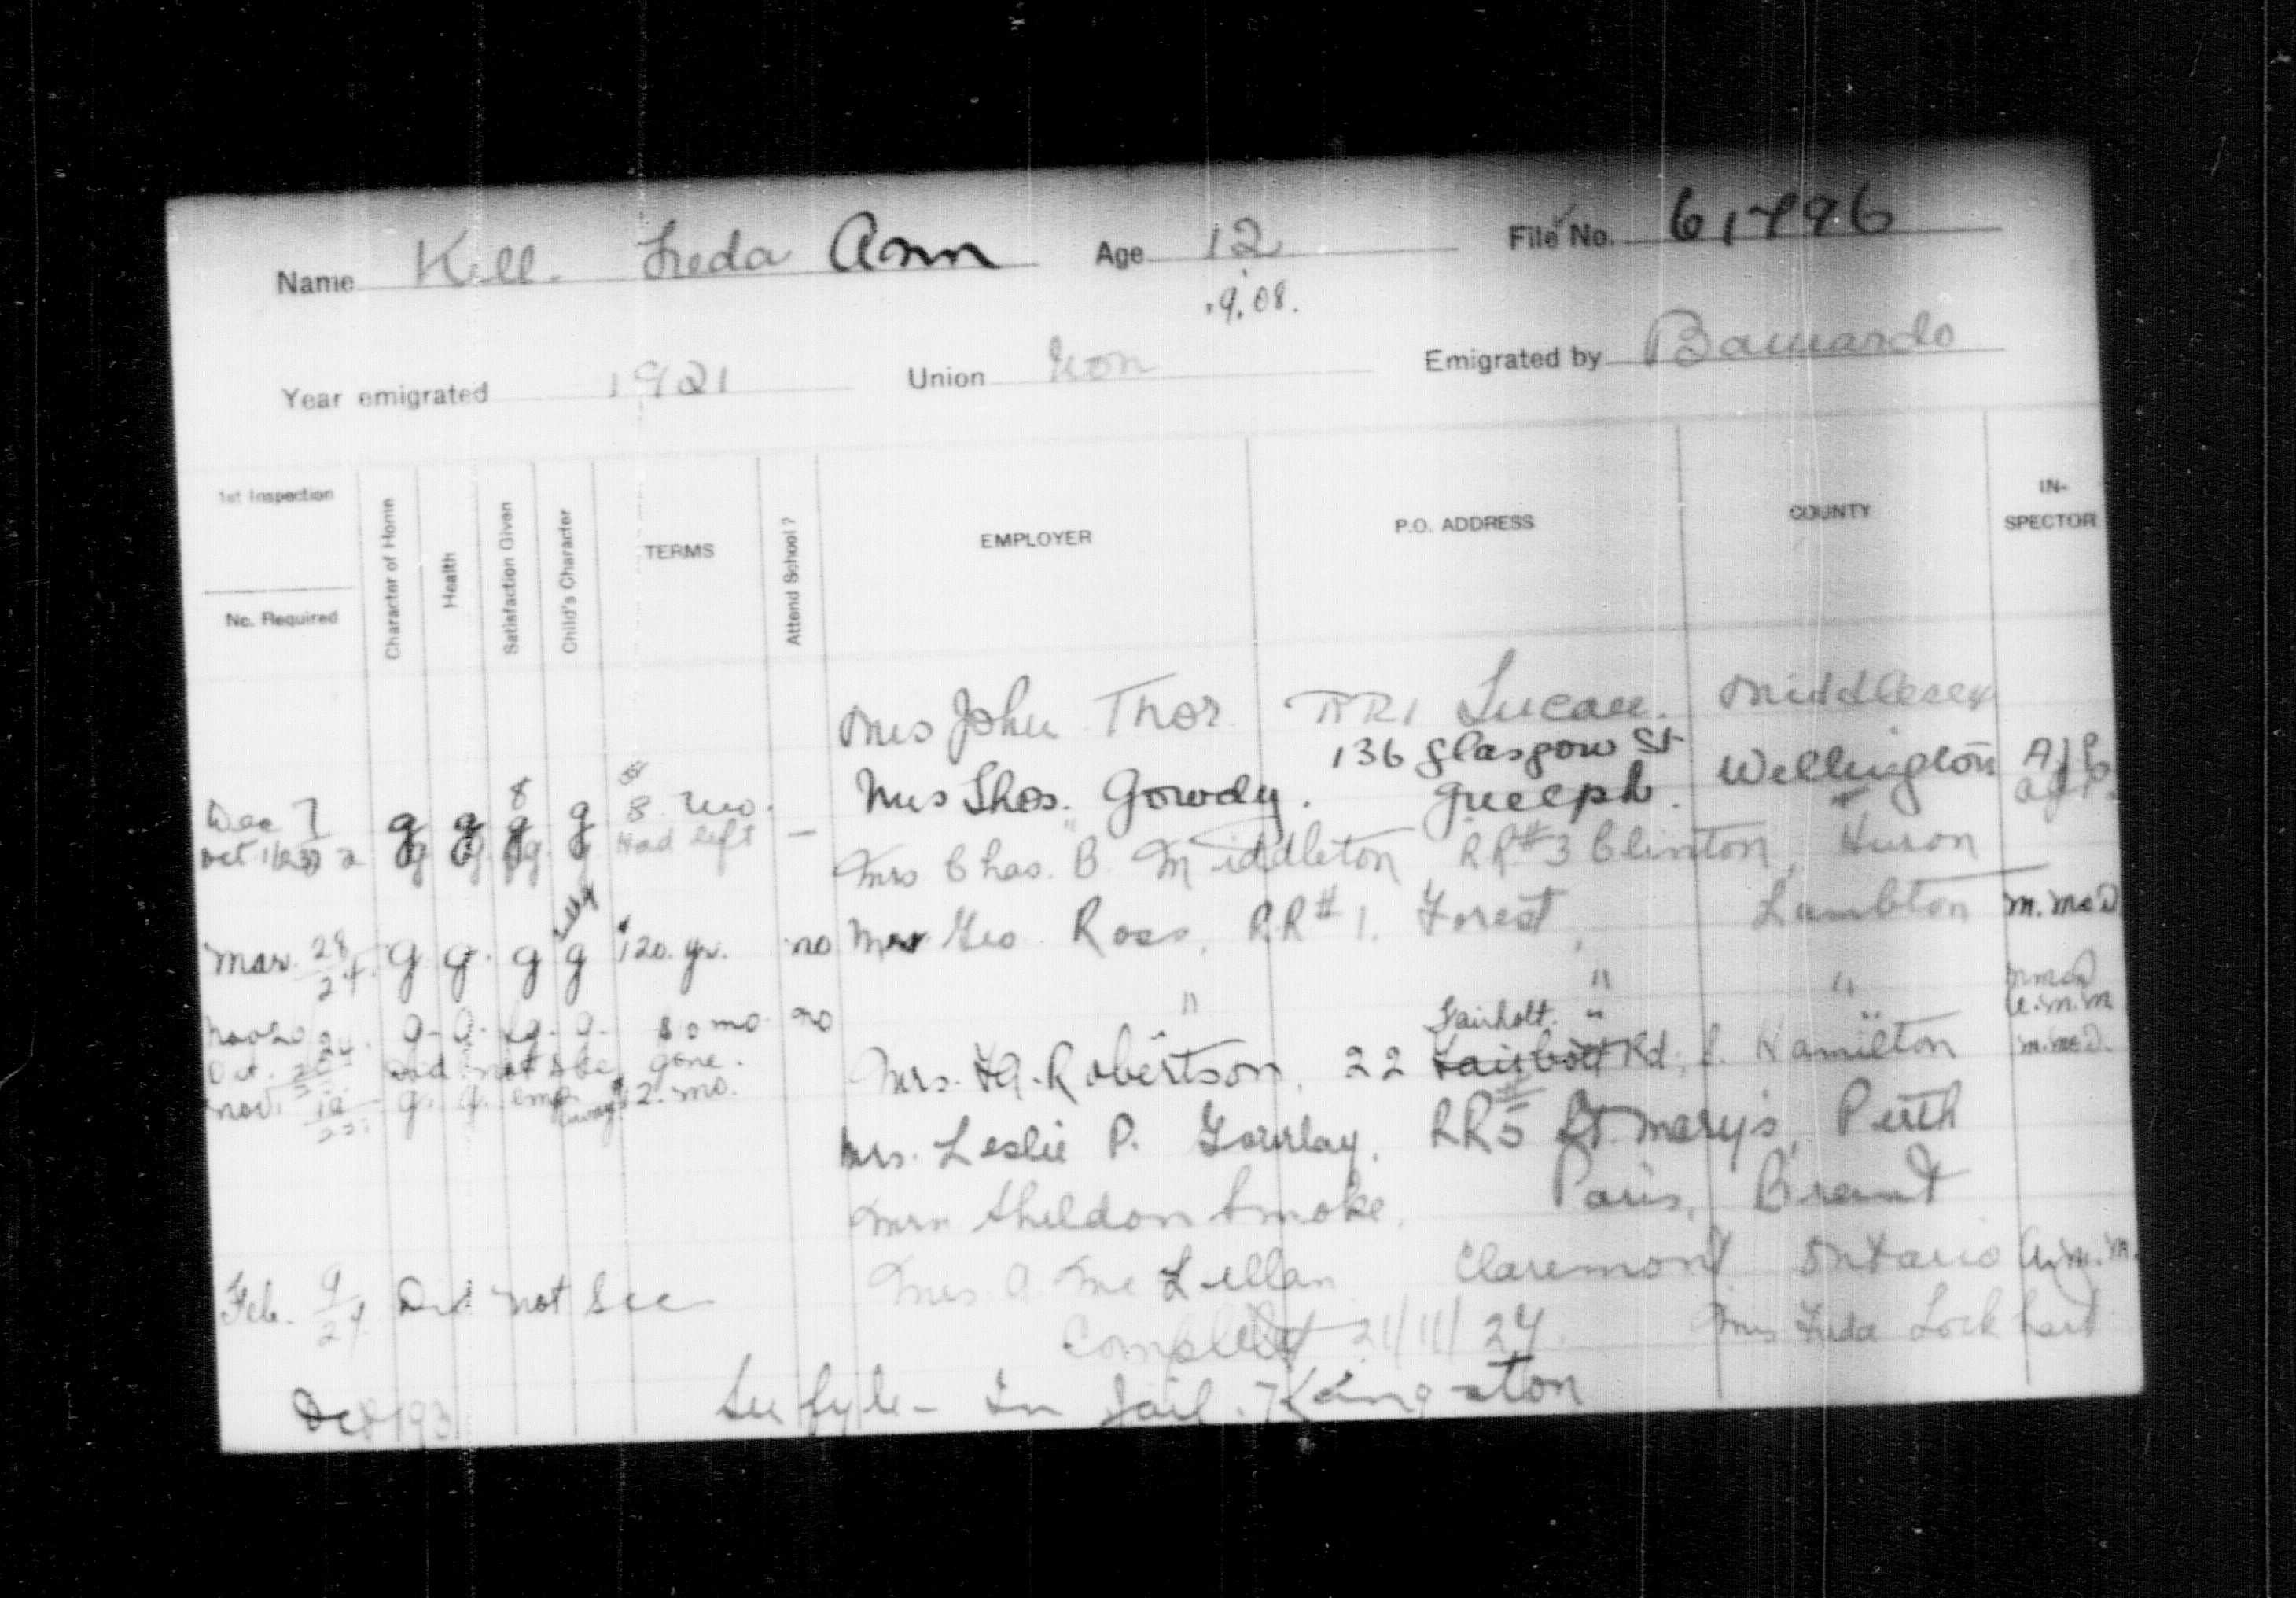 Name Kell. Freda Ann Age 12 File No. 61796
.9.08.
Year emigrated 1921 Union Non Emigrated by Barnardo
1st Inspection
No. Required
Character of Home
Health
Satisfaction Given
Child's Character
TERMS
Attend School?
EMPLOYER
P.O. ADDRESS
COUNTY
IN-SPECTOR
Mrs John Thor. RR1 Lucan. Middlesex
136 Glasgow St
Dec 7 g g g g 8. mo. Mrs Thos. Gowdy. Guelph. Wellington
Had left —
Mrs Chas. B. Middleton RR#3 Clinton, Huron
Mar. 28/24. g g. g g 120. yr. no Mrs Geo. Ross, RR#1. Forest, Lambton M. McD
g. g. fg. g. mo. no " " "
Fairholt. "
Oct. Did not see gone. a.m.m.
Nov. g. g. 12. mo. Mrs. F.A. Robertson, 22 Fairbott Rd, S. Hamilton M. McD.
Mrs. Leslie P. Gourlay, RR#5 St. Mary's, Perth
Mrs. Sheldon Smoke, Paris, Brant
Feb. 9/27. Did not see Mrs. A. McLellan Claremont Ontario A.m.m.
Mrs Freda Lockhart
See fyle - In Jail. Kingston